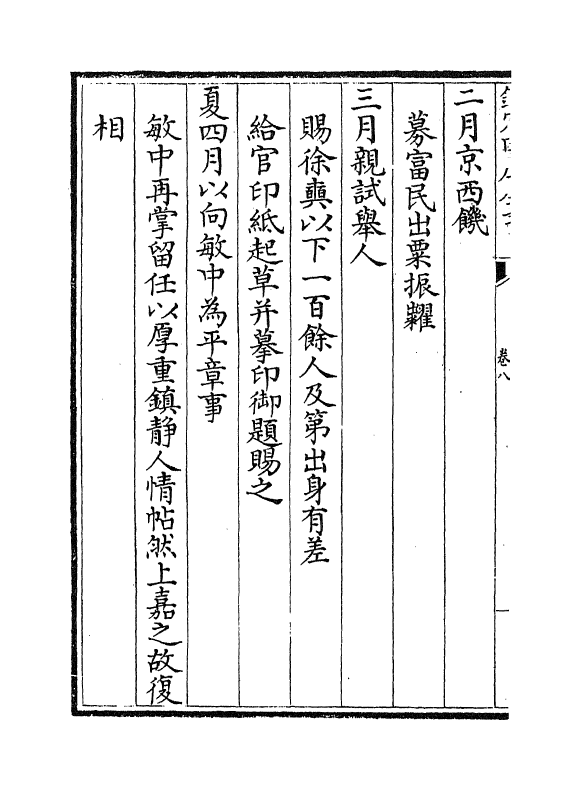 卷八
二月京西饑
募富民出粟振糶
三月親試舉人
賜徐奭以下一百餘人及第出身有差
給官印紙起草并摹印御題賜之
夏四月以向敏中為平章事
敏中再掌留任以厚重鎮靜人情帖然上嘉之故復
相